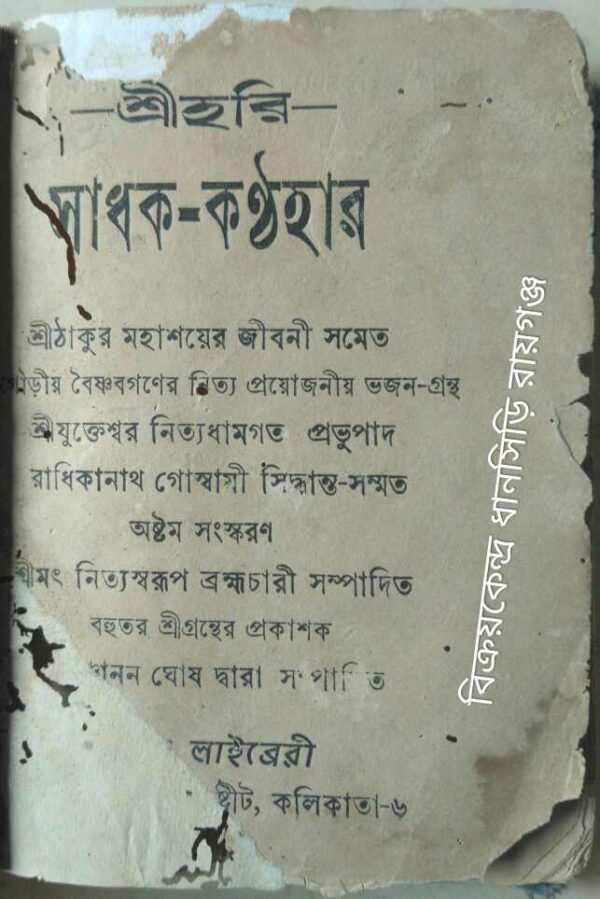 —শ্রীহরি—
সাধক-কণ্ঠহার
শ্রীঠাকুর মহাশয়ের জীবনী সমেত
গৌড়ীয় বৈষ্ণবগণের নিত্য প্রয়োজনীয় ভজন-গ্রন্থ
শ্রীযুক্তেশ্বর নিত্যধামগত প্রভুপাদ
রাধিকানাথ গোস্বামী সিদ্ধান্ত-সম্মত
অষ্টম সংস্করণ
শ্রীমৎ নিত্যস্বরূপ ব্রহ্মচারী সম্পাদিত
বহুতর শ্রীগ্রন্থের প্রকাশক
ঘোষ দ্বারা
লাইব্রেরী
কলিকাতা-৬
বিক্রয়কেন্দ্র ধানসিড়ি রায়গঞ্জ